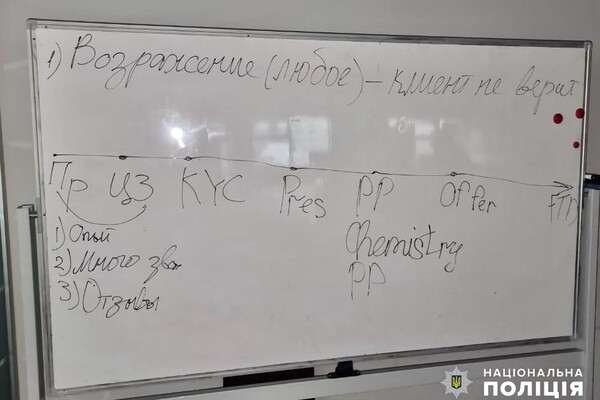 1) Возражение (любое) - клиент не верит
Пр ЦЗ KYC Pres PP Offer FTD
1) Опыт
2) Много зво
3) Отзывы
Chemistry
PP
НАЦІОНАЛЬНА
ПОЛІЦІЯ